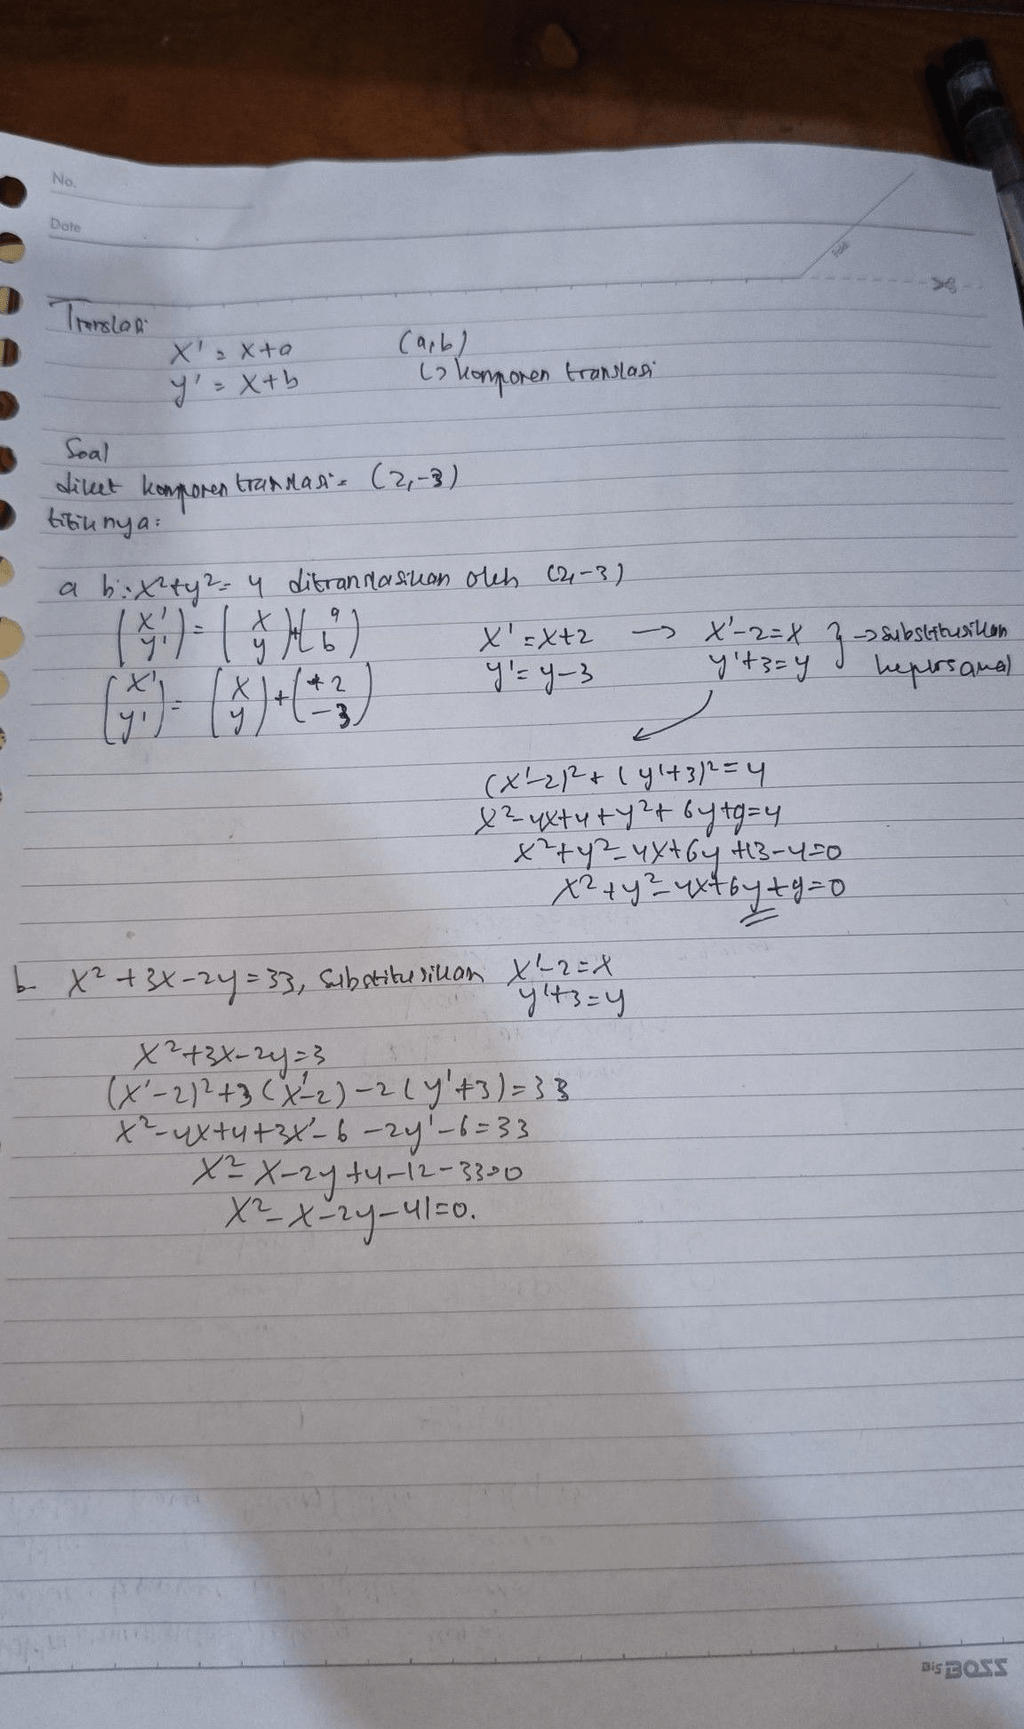 No.
Date
Translasi
x' = x+a (a,b)
y' = x+b ↳ komponen translasi
Soal
diket komponen translasi = (2,-3)
titiknya:
a b: x²+y²= 4 ditranslasikan oleh (2,-3)
(x' y') = (x y) + (a b)
x' = x+2 → x'-2=x } → substitusikan
y' = y-3 y'+3=y kepersamal
(x' y') = (x y) + (+2 -3)
(x'-2)² + (y'+3)² = 4
x²-4x+4+y²+6y+9=4
x²+y²-4x+6y+13-4=0
x²+y²-4x+6y+9=0
b x² +3x-2y = 33, substitusikan x'-2=x
y'+3=y
x²+3x-2y=3
(x'-2)²+3(x'-2)-2(y'+3)=33
x²-4x+4+3x'-6-2y'-6=33
x²-x-2y+4-12-33=0
x²-x-2y-41=0.
Bis BOSS